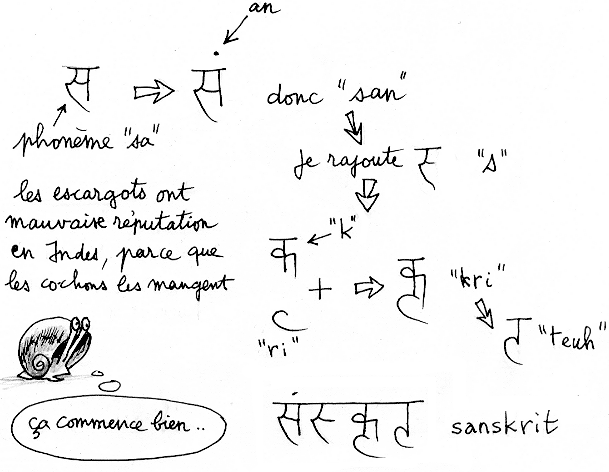 an
स ⇨ सं donc "san"
phonème "sa"
je rajoute स् "s"
les escargots ont
mauvaise réputation
en Indes, parce que
les cochons les mangent
क "k"
+ ⇨ कृ "kri"
ृ "ri"
त "teuh"
ça commence bien..
संस्कृत sanskrit